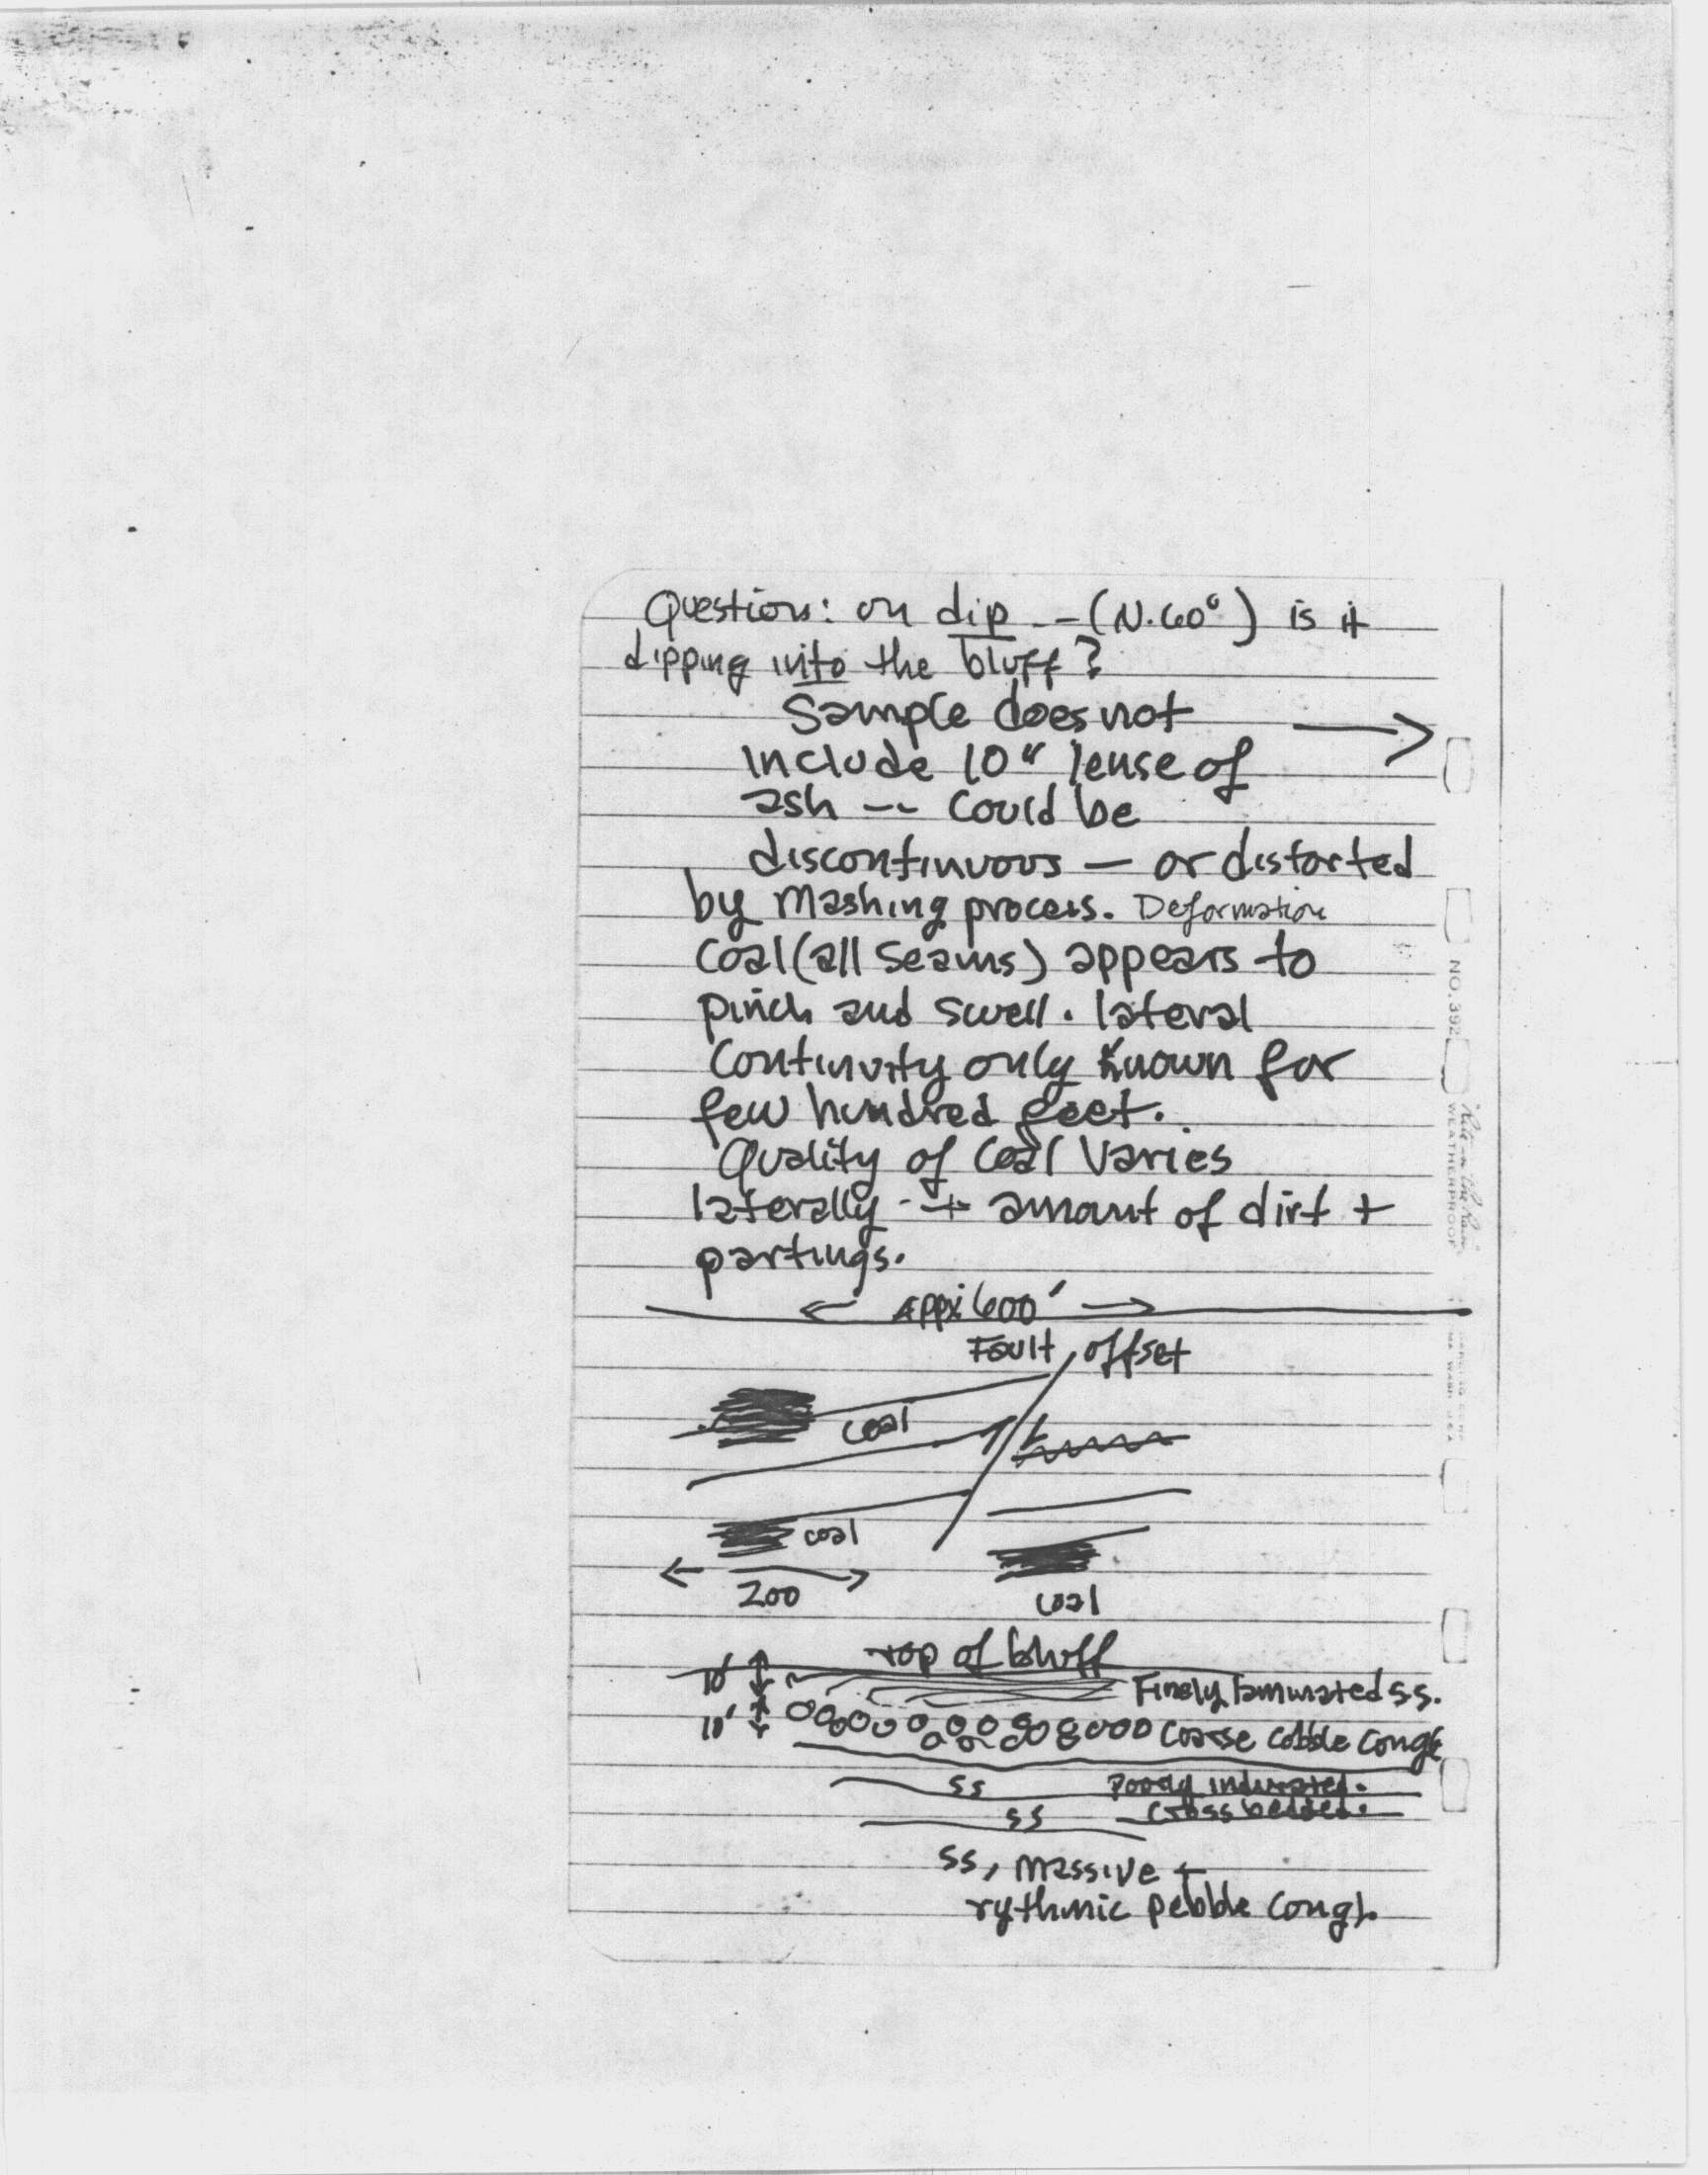 Question: on dip -- (N.60°) is it
dipping into the bluff?
Sample does not
include 10" lense of
ash -- could be
discontinuous — or distorted
by mashing process. Deformation
Coal (all seams) appears to
pinch and swell. lateral
Continuity only known for
few hundred feet.
Quality of coal varies
laterally -+ amount of dirt +
partings.
← Appx 600' →
Fault offset
coal
coal
200
coal
Top of bluff
10'
Finely laminated s.s.
10'
Coarse cobble congl
ss Poorly indurated.
ss Cross bedded.
ss, massive +
rythmic pebble congl.
NO. 392
"Rite in the Rain"
WEATHERPROOF